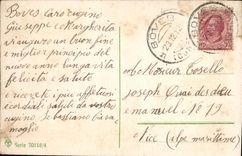 Boves Caro cugino
Giuseppe e Margherita
vi auguro un buon fine
e miglior principio del
nuovo anno lunga vita
felicità e salute
e ricevete i più affettuosi
cordiali saluti da vostro
cugino,
moglie
Serie 70118/4
BOVES
Monsieur Tosello
Joseph Quai des deux
emanuel Nº 19
Nice (alpe maritime)